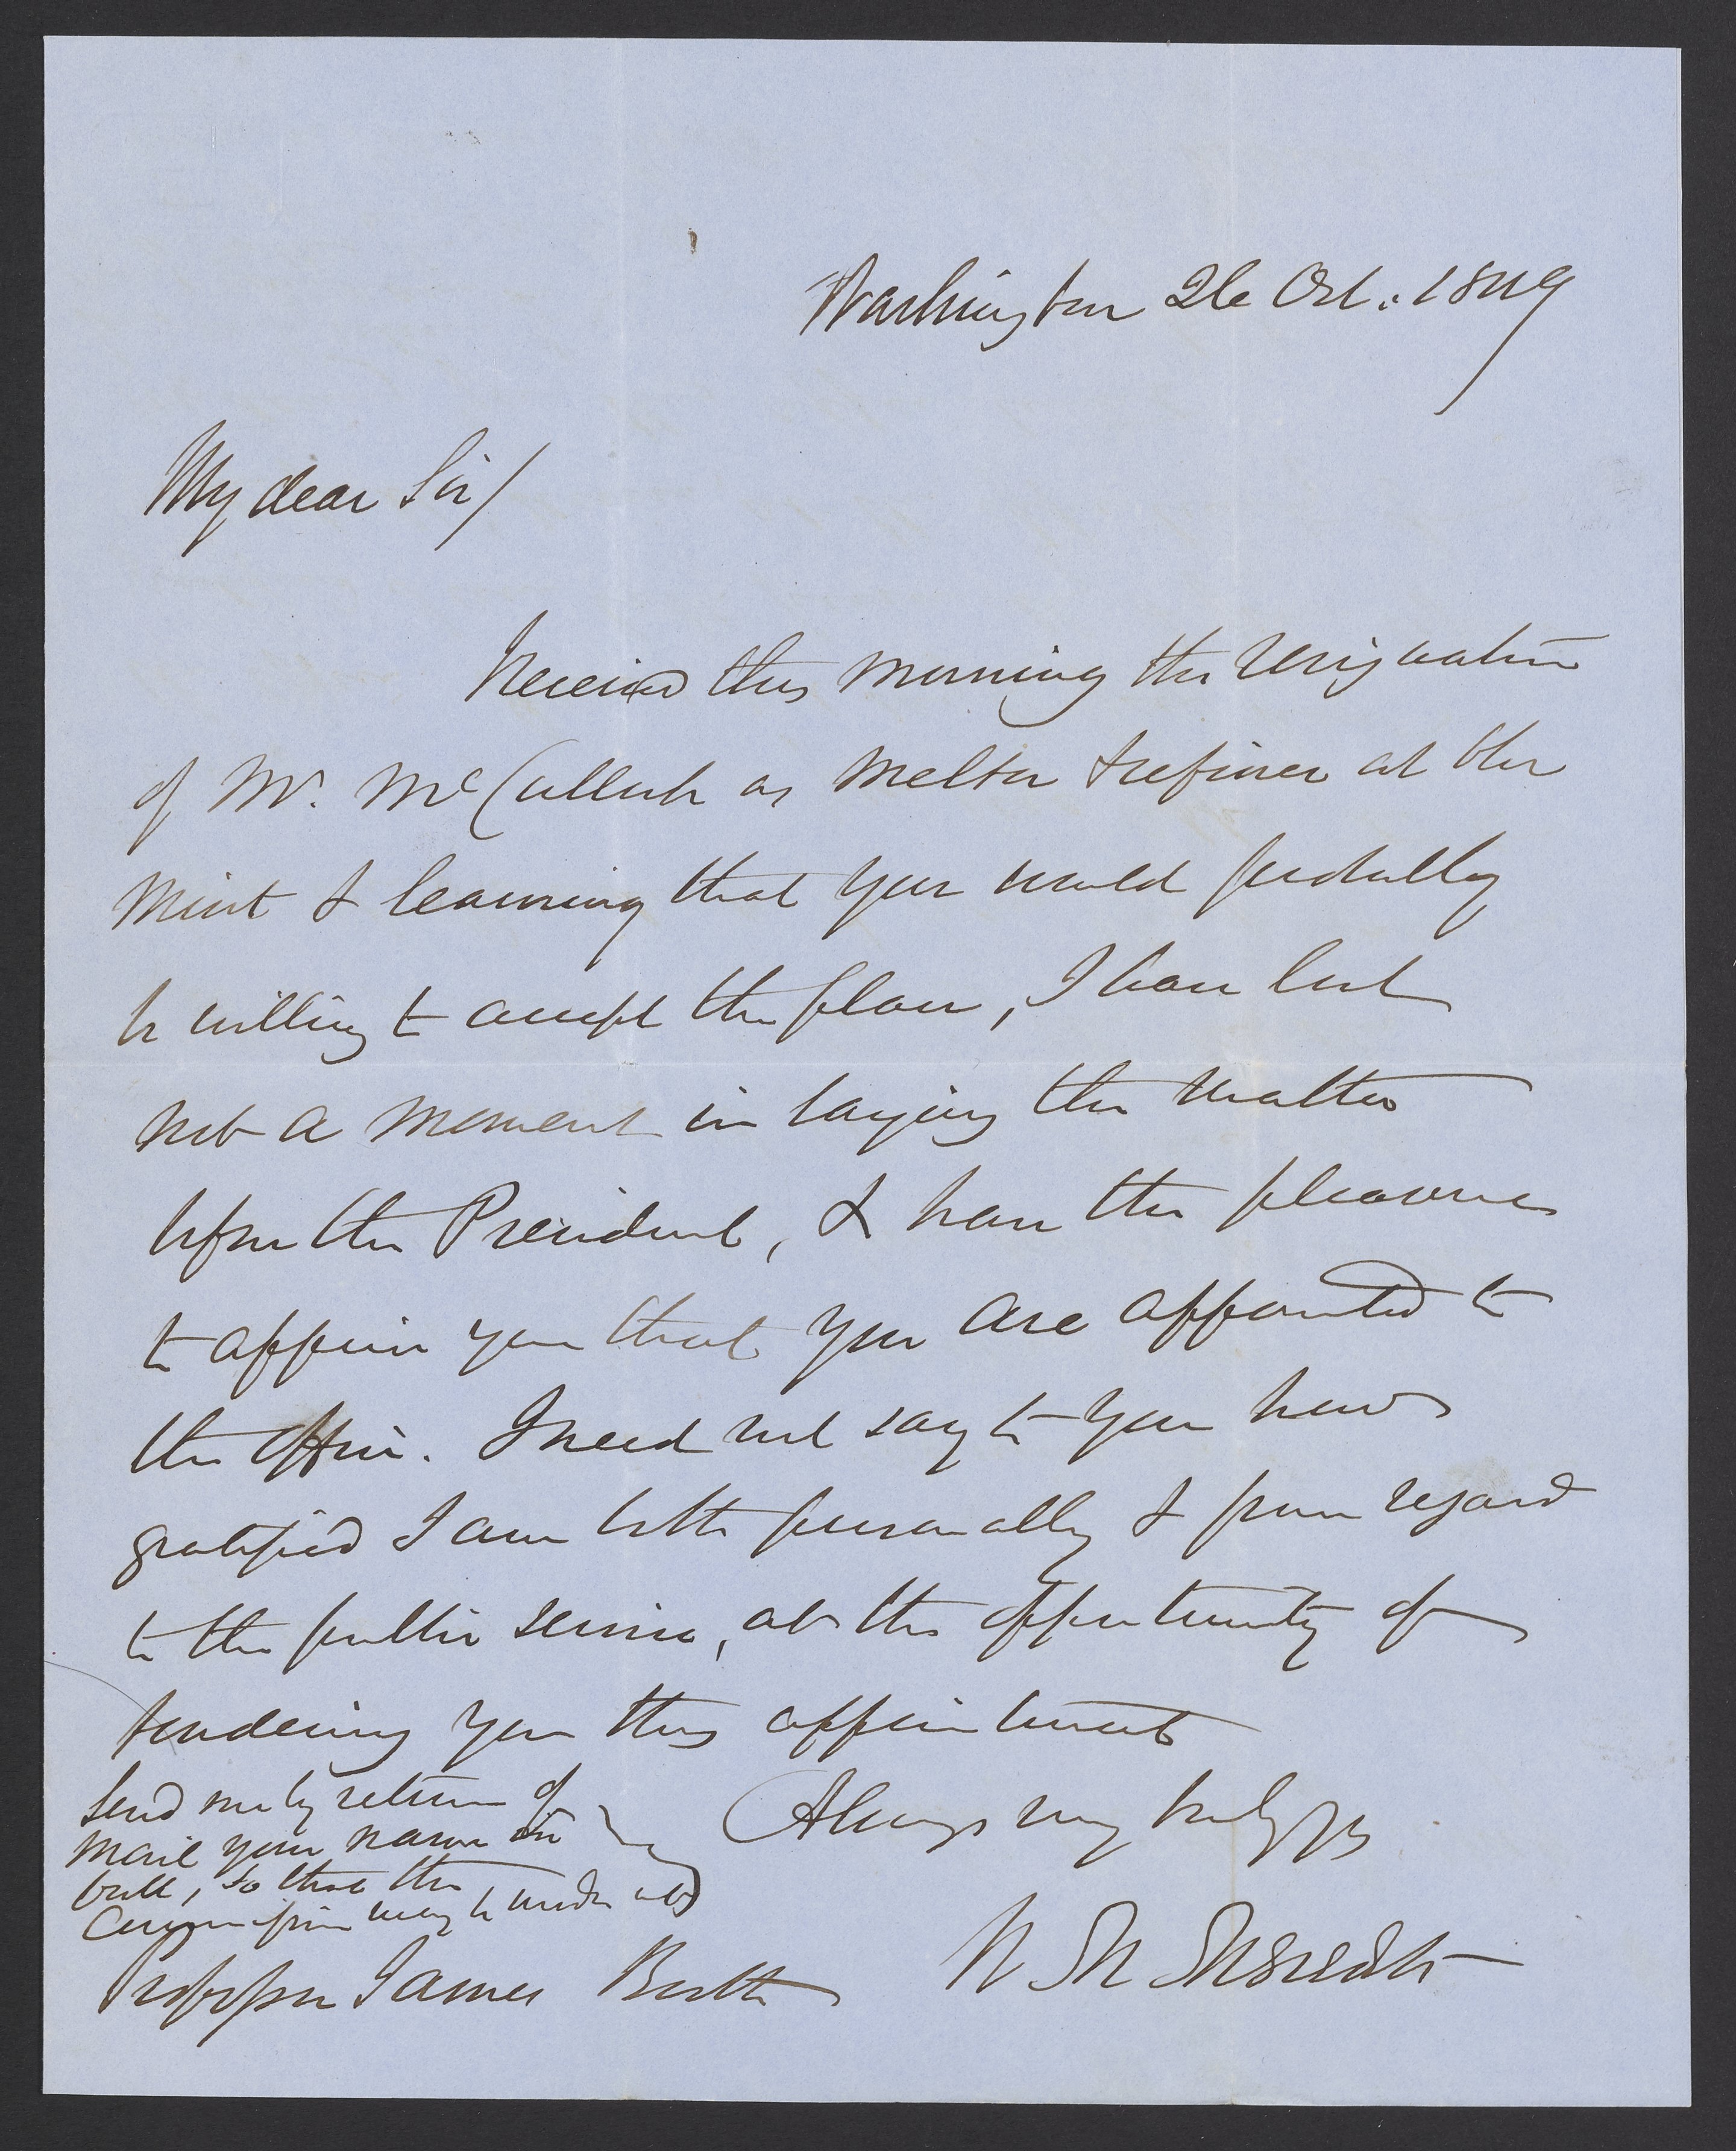 Washington 26 Oct. 1849
My dear Sir/
Received this morning the resignation
of Mr. McCulloh as Melter & refiner at the
Mint & learning that you would probably
be willing to accept the place, I have lost
not a moment in laying the matter
before the President, & have the pleasure
to apprise you that you are appointed to
the office. I need not say to you how
gratified I am both personally & from regard
to the public service, at the opportunity of
tendering you this appointment
Send me by return of
mail your name in
full, so that the
Commission may be made out
Always very truly yrs
W M Meredith
Professor James Booth